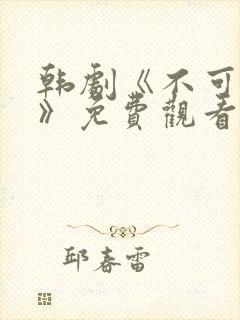 韩劇《不可
》免費觀看
邱春雷